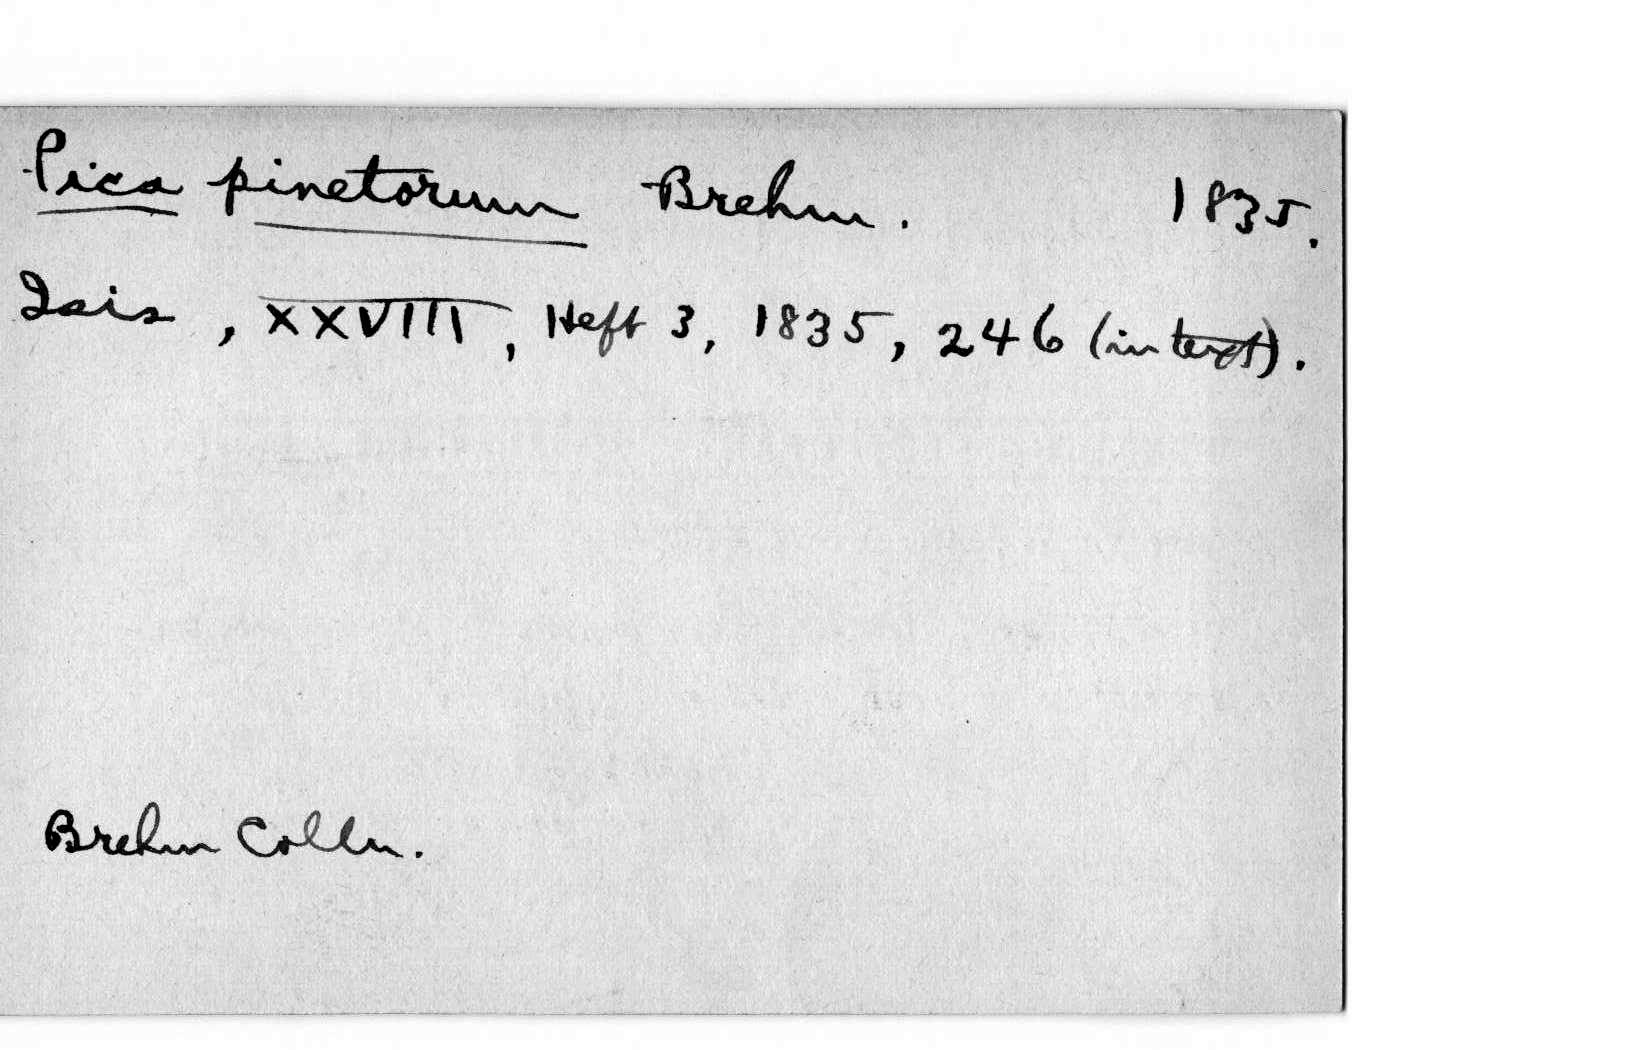 Pica pinetorum Brehm. 1835.
Isis, XXVIII, Heft 3, 1835, 246 (in text).
Brehm Colln.